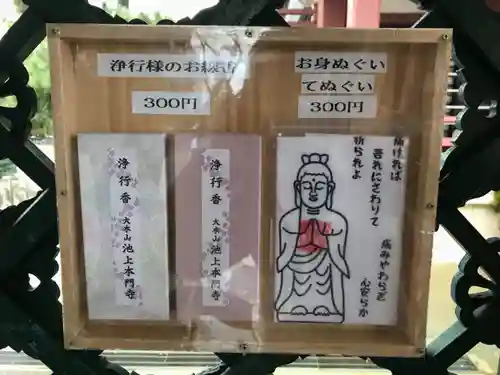 浄行様のお線香
300円
お身ぬぐい
てぬぐい
300円
浄行香
大本山
池上本門寺
浄行香
大本山
池上本門寺
ければ
吾れにさわりて
祈られよ
痛みやわらぐ
心安らか